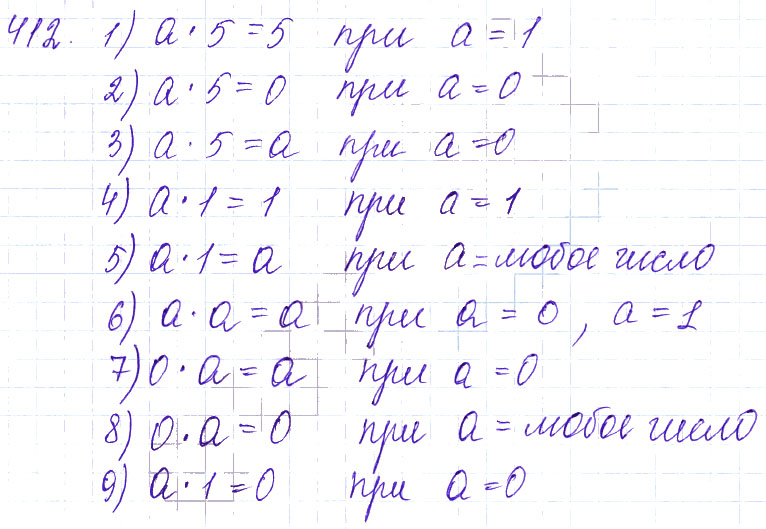 412. 1) a · 5 = 5 при a = 1
2) a · 5 = 0 при a = 0
3) a · 5 = a при a = 0
4) a · 1 = 1 при a = 1
5) a · 1 = a при a = любое число
6) a · a = a при a = 0, a = 1
7) 0 · a = a при a = 0
8) 0 · a = 0 при a = любое число
9) a · 1 = 0 при a = 0